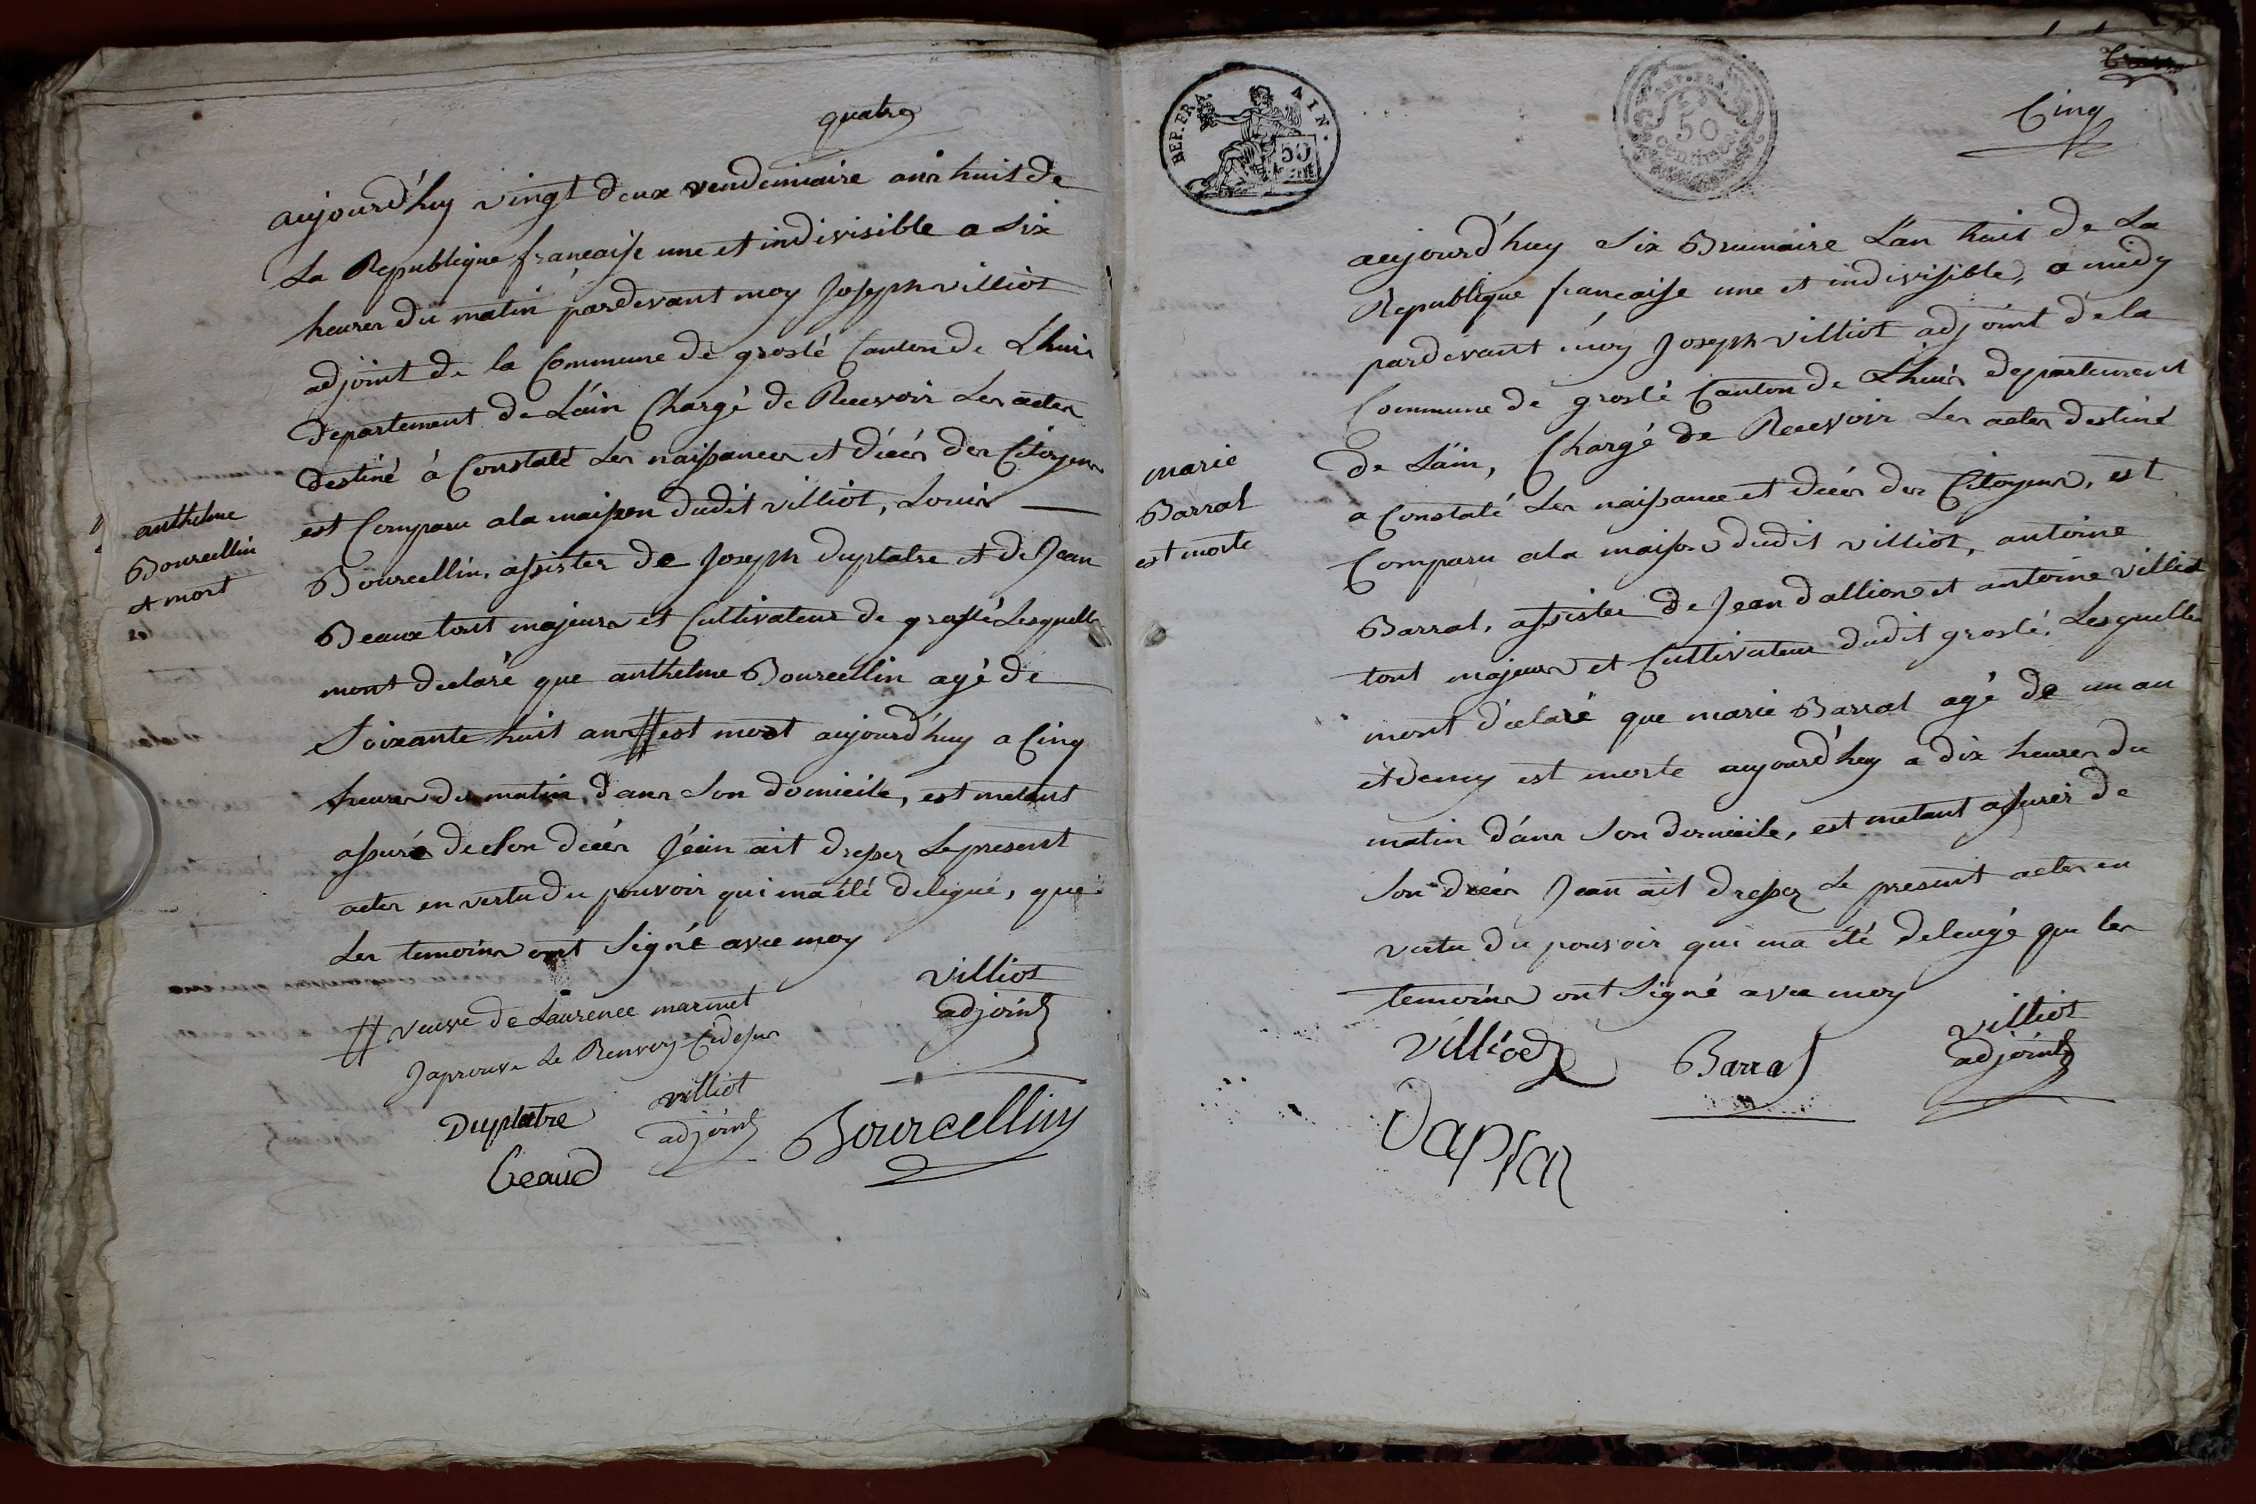 quatre
aujourd'huy vingt deux vendemiaire ans huit de
La Republique françaisse une et indivisible a six
heures du matin pardevant moy Joseph villiot
adjoint de la Commune de groslé Canton de Lhuis
departement de L'ain Chargé de Recevoir Les actes
destiné à Constaté Les naissances et décés des Citoyens
est Comparu a la maison dudit villiot, Louis
Bourcellin, assister de Joseph duplatre et de Jean
Beaux tout majeurs et Cultivateur de groslé Lesquelles
mont declaré que anthelme Bourcellin agé de
Soixante huit ans # est mort aujourd'huy a Cinq
heures du matin, dans Son domicile, est metant
assurés de Son décés Jéain ait dresser Le present
actes en vertu du pouvoir qui ma été deligué, que
Les temoins ont Signé avec moy
anthelme
Bourcellin
et mort
villiot
adjoint
# veuve de Laurence marinet
Japrouve Le Renvoy Cidessus
villiot
adjoint
Duplatre
Beaud
Bourcellin
REP. FRA.
AIN.
50
50
centimes
Cinq
aujourd'huy Six Brumaire L'an huit de La
Republique françaisse une et indivisible, a midy
pardevant moy Joseph villiot adjoint de la
Commune de groslé Canton de Lhuis departement
de L'ain, Chargé de Recevoir Les actes destiné
a Constaté Les naissance et décés des Citoyens, est
Comparu a la maison dudit villiot, antoine
Barral, assister de Jean dallion et antoine villiot
tout majeurs et Cultivateur dudit groslé, Lesquelles
mont déclaré que marie Barral agé de un an
et demy est morte aujourd'huy a dix heures du
matin dans Son domicile, est metant assurés de
Son décés Jean ait dresser Le present actes en
vertu du pouvoir qui ma été deleugé que les
temoins ont Signé avec moy
marie
Barral
est morte
villiod
Barral
villiot
adjoint